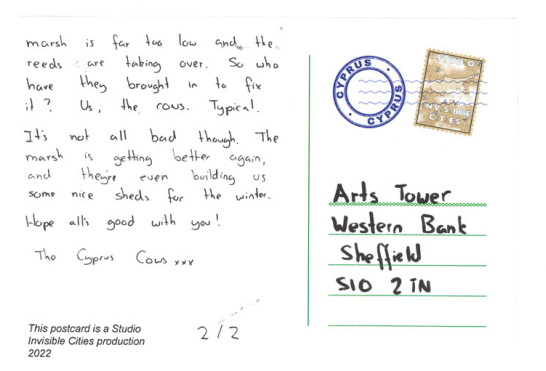 marsh is far too low and the
reeds are taking over. So who
have they brought in to fix
it? Us, the rows. Typical.
It's not all bad though. The
marsh is getting better again,
and they're even building us
some nice sheds for the winter.
Hope all's good with you!
The Cyprus Cows xxx
This postcard is a Studio
Invisible Cities production
2022
2/2
CYPRUS
CYPRUS
INVISIBLE
CITIES
Arts Tower
Western Bank
Sheffield
S10 2TN